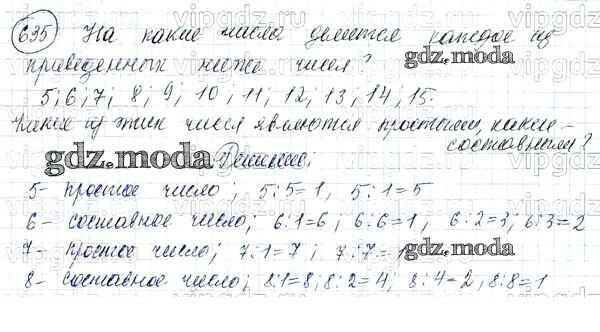 635 На какие числа делится каждое из
приведенных ниже чисел?
5; 6; 7; 8; 9; 10; 11; 12; 13; 14; 15.
Какие из этих чисел являются простыми, какие -
составными?
Решение:
5- простое число; 5:5=1, 5:1=5
6- составное число; 6:1=6; 6:6=1, 6:2=3; 6:3=2
7- простое число; 7:1=7; 7:7=1
8- составное число; 8:1=8; 8:2=4; 8:4=2, 8:8=1
gdz.moda
gdz.moda
gdz.moda
vipgdz